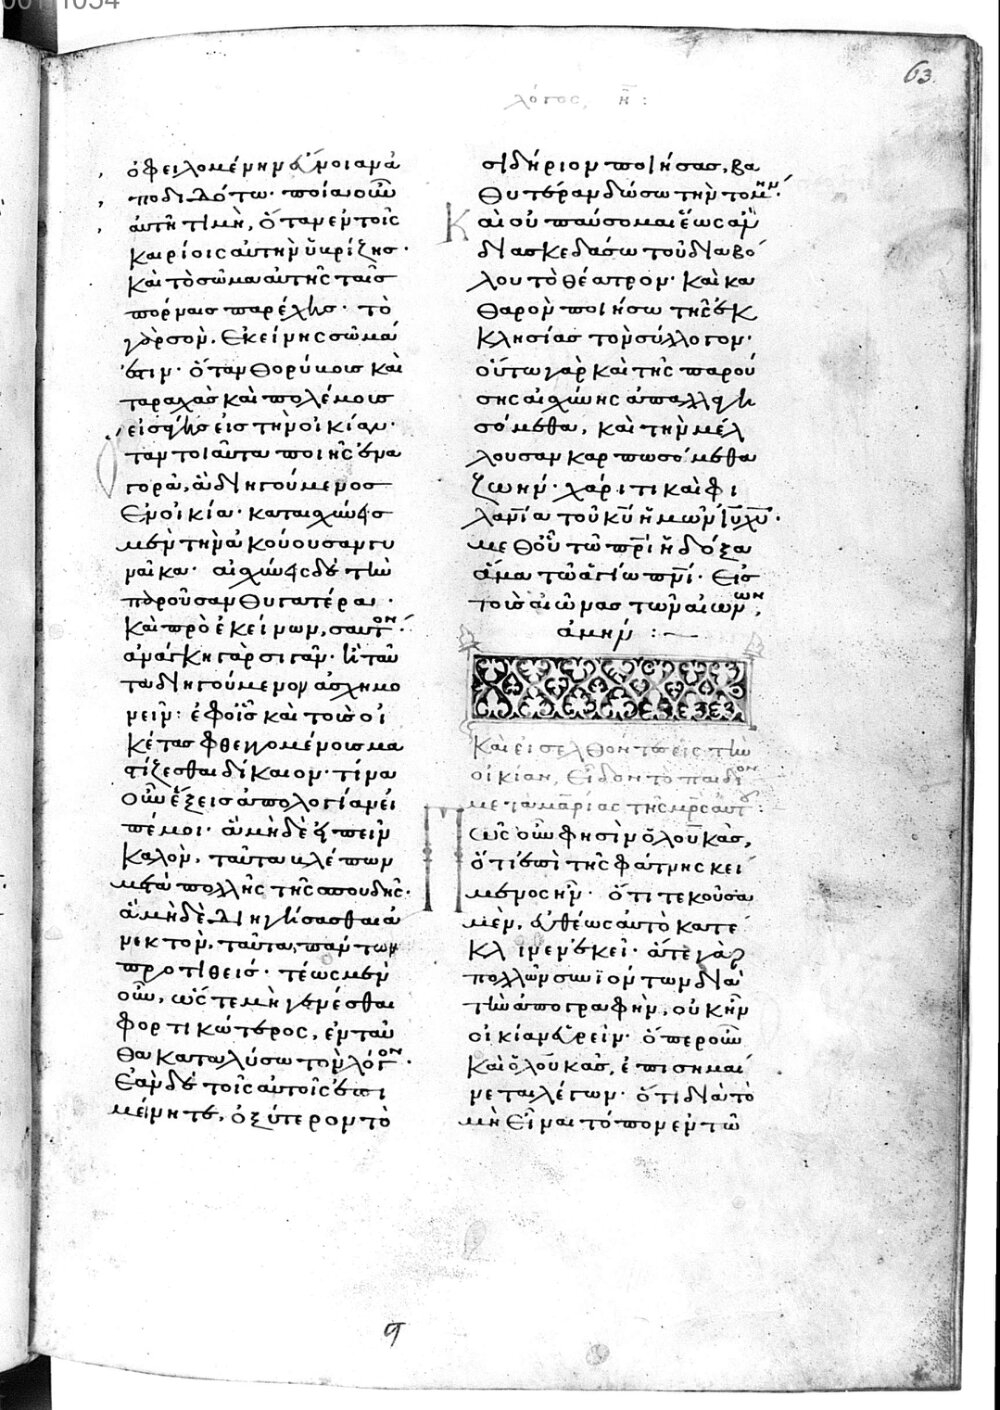 63
λόγος, η̅ :
ὀφειλομένην εὔνοιαν ἀ
ποδιδότω· ποία γοῦν
αὐτῆ τιμὴ, ὅταν ἐν τοῖς
καιρίοις αὐτὴν ὑβρίζης·
καὶ τὸ σῶμα αὐτῆς ταῖς
πόρναις παρέχης· τὸ
γὰρ σὸν, ἐκείνης σῶμά
ἐστιν· ὅταν θορύβοις καὶ
ταραχὰς καὶ πολέμοις
εἰσάγης εἰς τὴν οἰκίαν·
ταν τοιαῦτα ποιῆς ἐν ἀ
γορᾶ, ἃ διηγούμενος
ἐν οἰκία· καταισχύνεις
μὲν τὴν ἀκούουσαν γυ
ναῖκα· αἰσχύνεις δὲ τὴν
παροῦσαν θυγατέρα·
καὶ πρὸ ἐκείνων, σαυτὸν·
ἀνάγκη γὰρ σιγᾶν· ἢ ταῦ
τα διηγούμενον ἀσχημο
νεῖν: ἐφ οἷς καὶ τοὺς οἰ
κέτας φθεγγομένους μα
στίζεσθαι δίκαιον· τίνα
οὖν ἕξεις ἀπολογίαν εἰ
πέ μοι· ἃ μηδὲ εἰπεῖν
καλὸν, ταῦτα βλέπων
μετὰ πολλῆς τῆς σπουδῆς·
ἃ μηδὲ διηγήσασθαι ἀ
νεκτὸν, ταῦτα, πάντων
προτιθεὶς· τέως μὲν
οὖν, ὥστε μὴ γενέσθαι
φορτικώτερος, ἐνταῦ
θα καταλύσω τὸν λόγον·
Ἐὰν δὲ τοῖς αὐτοῖς ἐπι
μένητε, ὀξύτερον τὸ
σιδήριον ποιήσας, βα
θυτέραν δώσω τὴν τομήν·
Καὶ οὐ παύσομαι ἕως ἂν
διασκεδάσω τοῦ διαβό
λου τὸ θέατρον· καὶ κα
θαρὸν ποιήσω τῆς ἐκ
κλησίας τὸν σύλλογον·
οὕτω γὰρ καὶ τῆς παρού
σης αἰσχύνης ἀπαλλαγη
σόμεθα, καὶ τὴν μέλ
λουσαν καρπωσόμεθα
ζωήν· χάριτι καὶ φι
λαν̅ία τοῦ κυ̅ ἡμῶν ιυ̅ χυ̅·
μεθ οὗ τῶ πρ̅ὶ ἡ δόξα
ἅμα τῶ ἁγίω πν̅ὶ· εἰς
τοὺς αἰῶνας τῶν αἰώνων,
ἀμήν :—
Καὶ εἰσελθόντες εἰς τὴν
οἰκίαν, εἶδον τὸ παιδίον
μετὰ μαρίας τῆς μρ̅ς αὐτοῦ:
Πῶς οὖν φησὶν ὁ λουκᾶς,
ὅτι ἐπὶ τῆς φάτνης κεί
μενος ἦν· ὅτι τεκοῦσα
μὲν, εὐθέως αὐτὸ κατέ
κλινεν ἐκεῖ· ἅτε γὰρ
πολλῶν συνϊόντων διὰ
τὴν ἀπογραφὴν, οὐκ ἦν
οἰκίαν εὑρεῖν· ὅπερ οὖν
καὶ ὁ λουκᾶς, ἐπισημαί
νεται λέγων· ὅτι διὰ τὸ
μὴ εἶναι τόπον ἐν τῶ